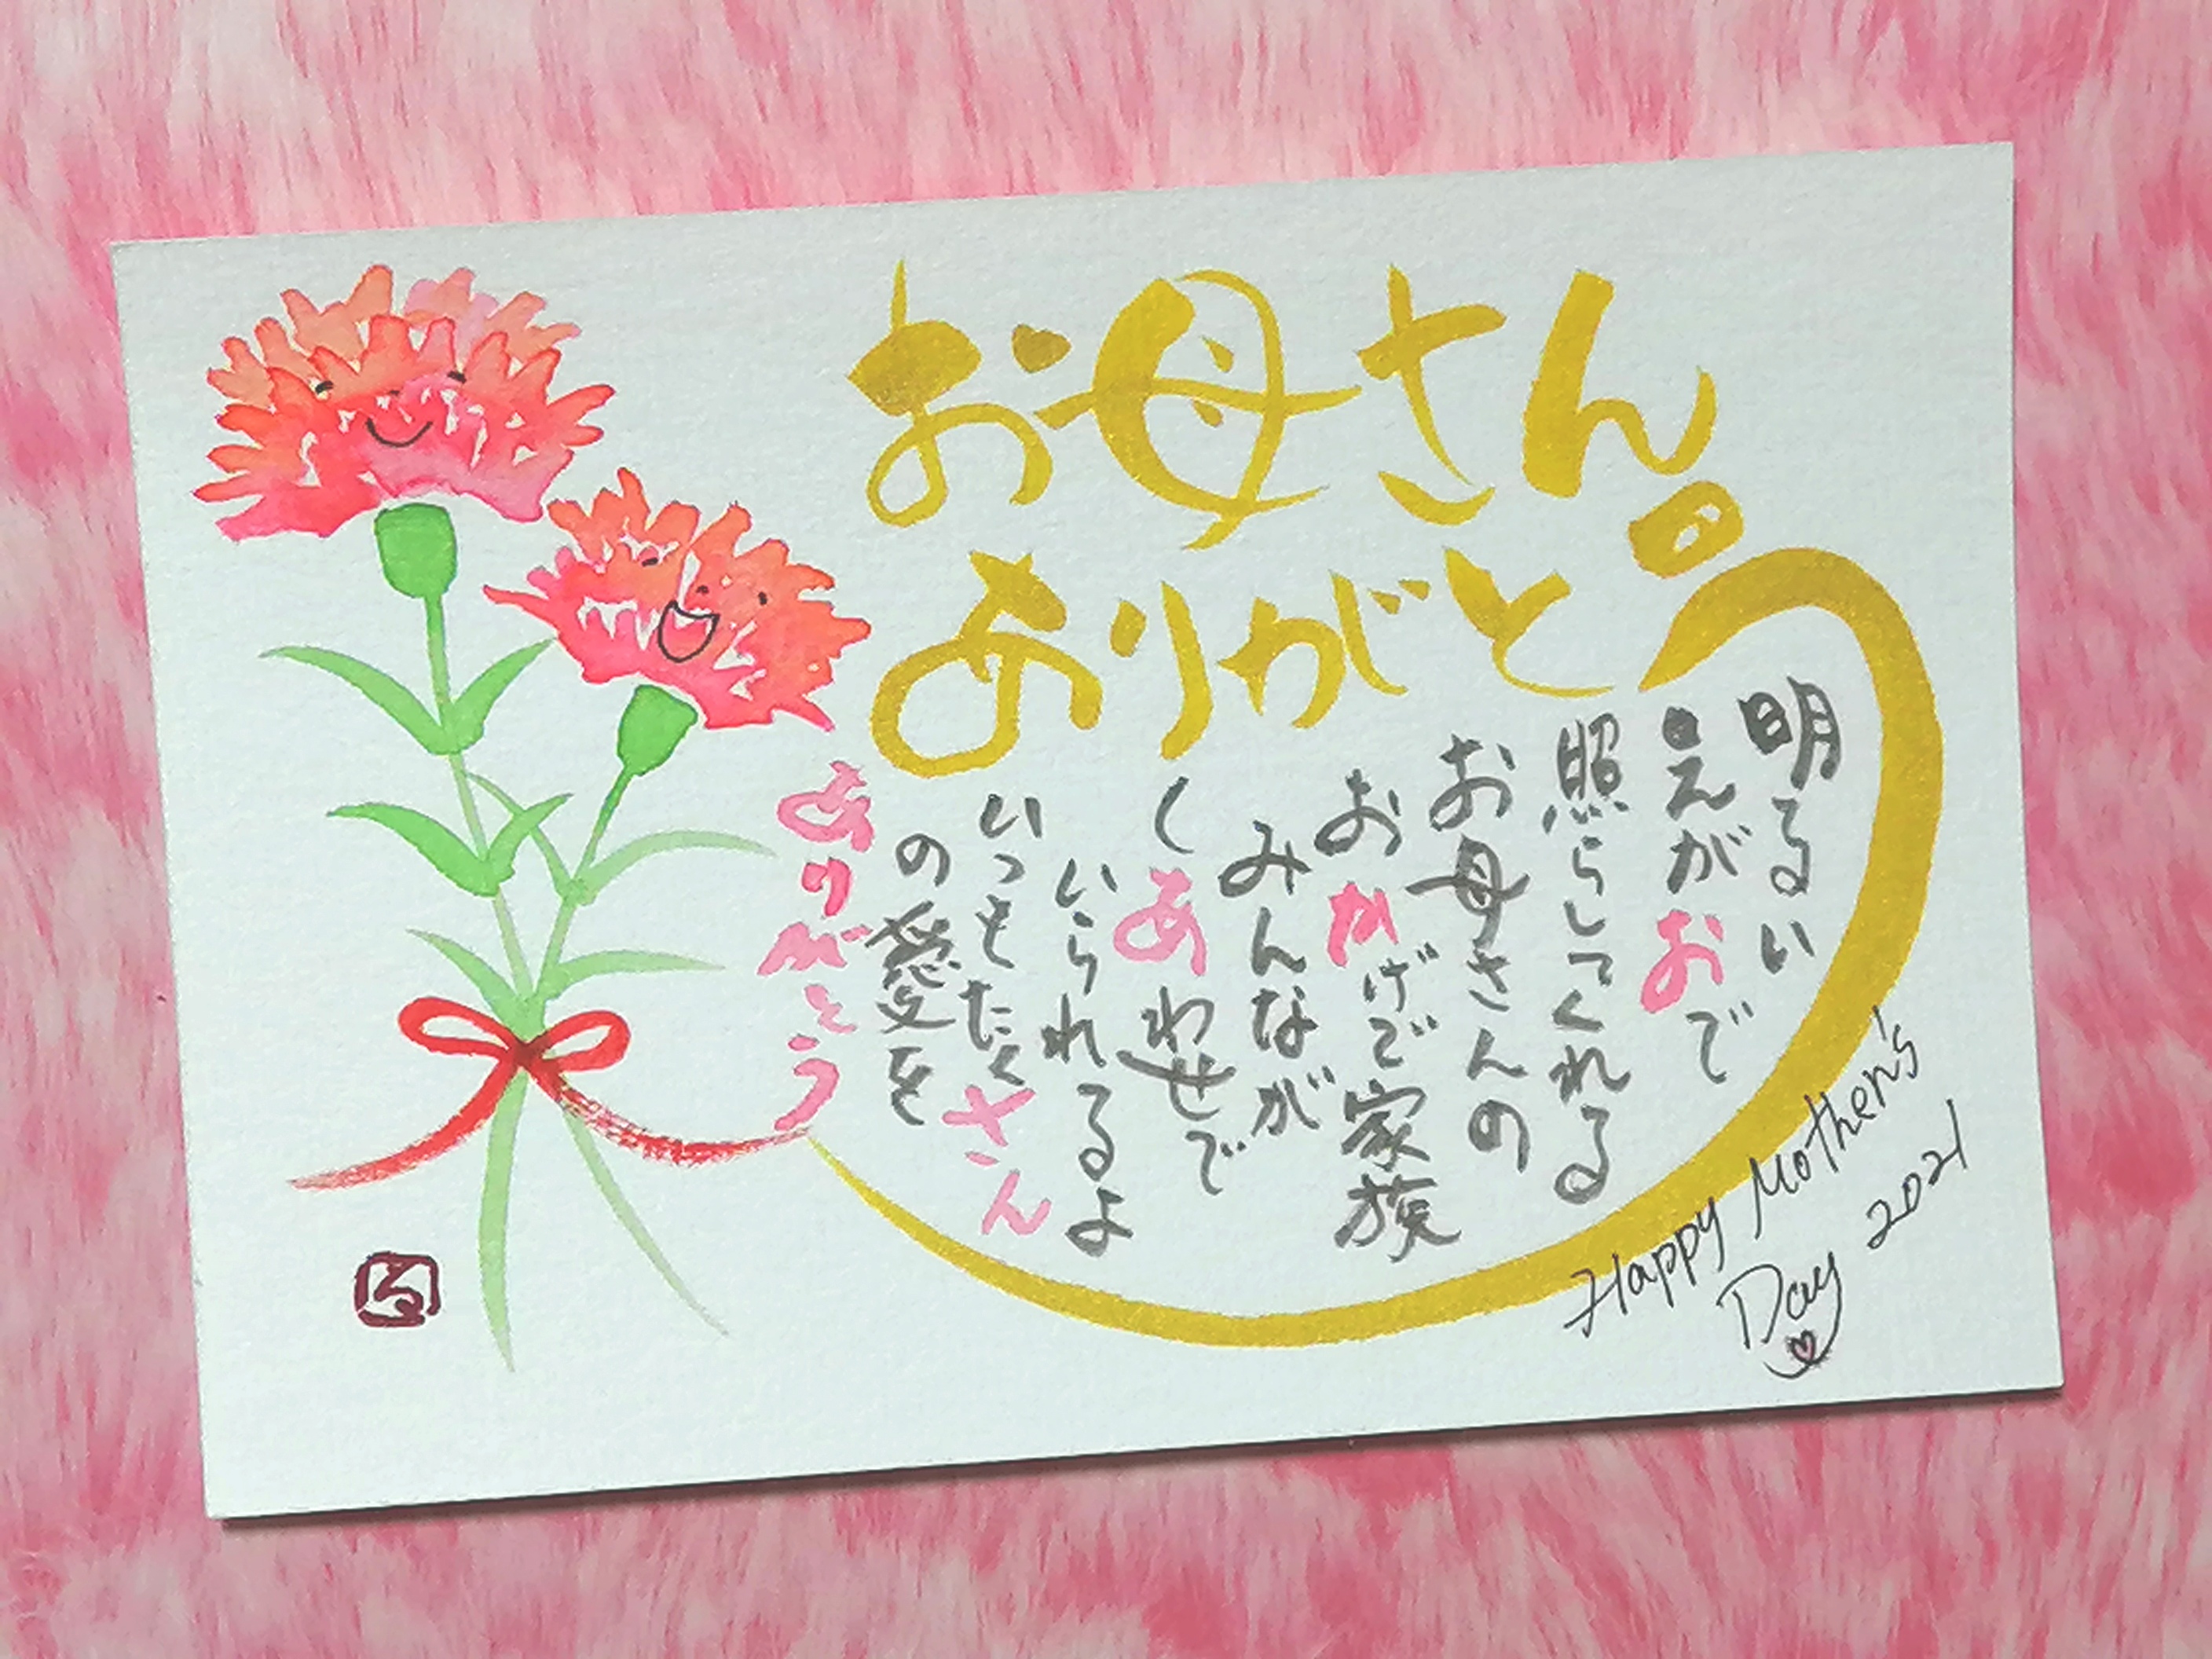 お母さん
ありがとう
明るい
えがおで
照らしてくれる
お母さんの
おかげで家族
みんなが
しあわせで
いられるよ
いつもたくさん
の愛を
ありがとう
Happy Mother's
Day 2021
る